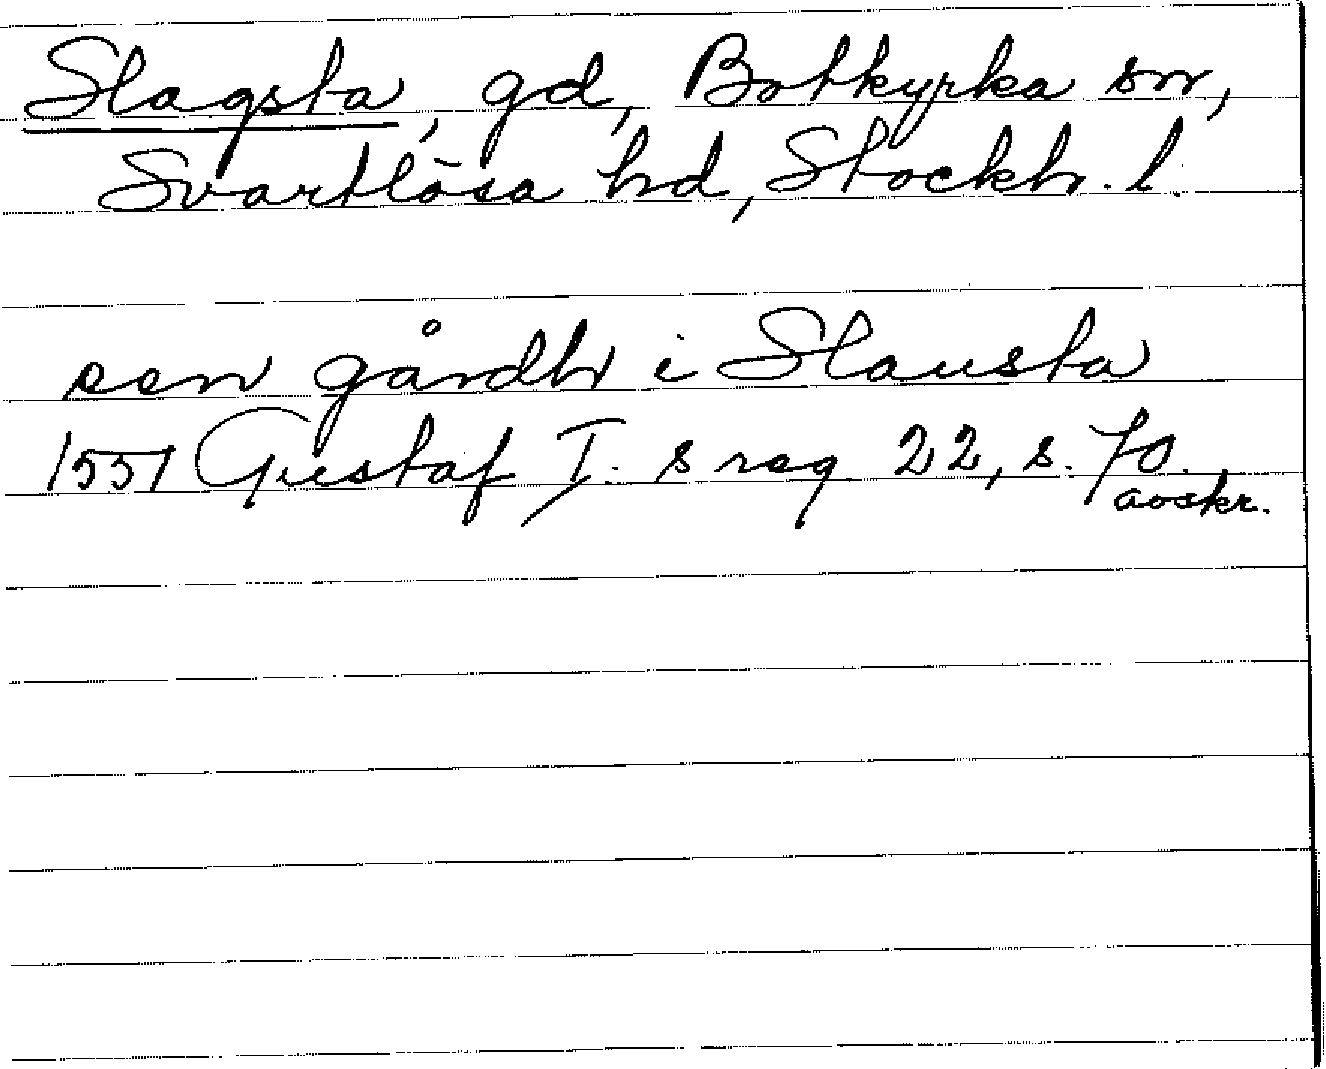 Slagsta, gd, Botkyrka sn,
Svartlösa hd, Stockh. l.
een gårdh i Slausta
1551 Gustaf I.s reg 22, s. 70.
avskr.